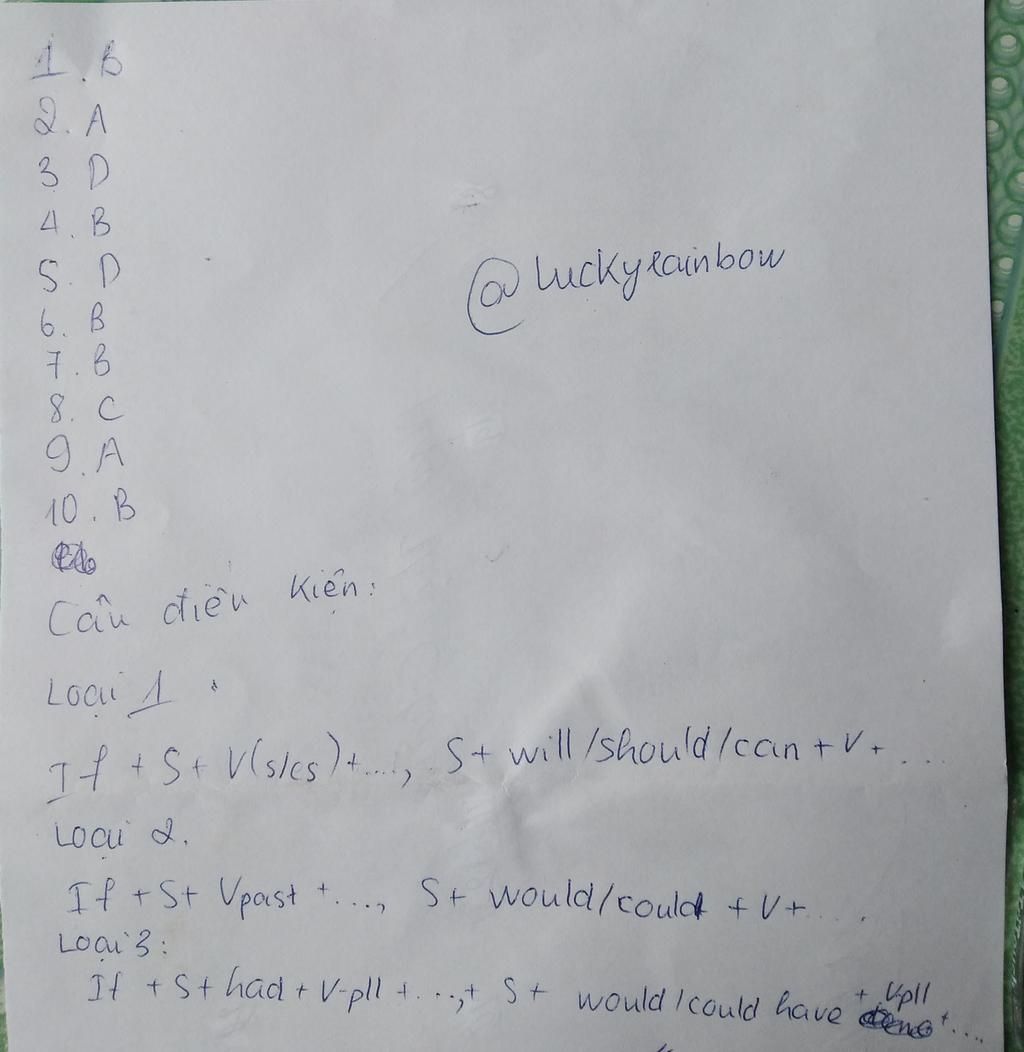 1. B
2. A
3 D
4. B
5. D
@luckyrainbow
6. B
7. B
8. C
9. A
10. B
Câu điều kiện:
Loại 1
If + S + V(s/es) +...., S+ will/should/can + V + ...
Loại 2.
If + S+ Vpast +..., S+ would/could + V+ ....
Loại 3:
If + S + had + V-pII + ...,+ S+ would/could have + VpII +....